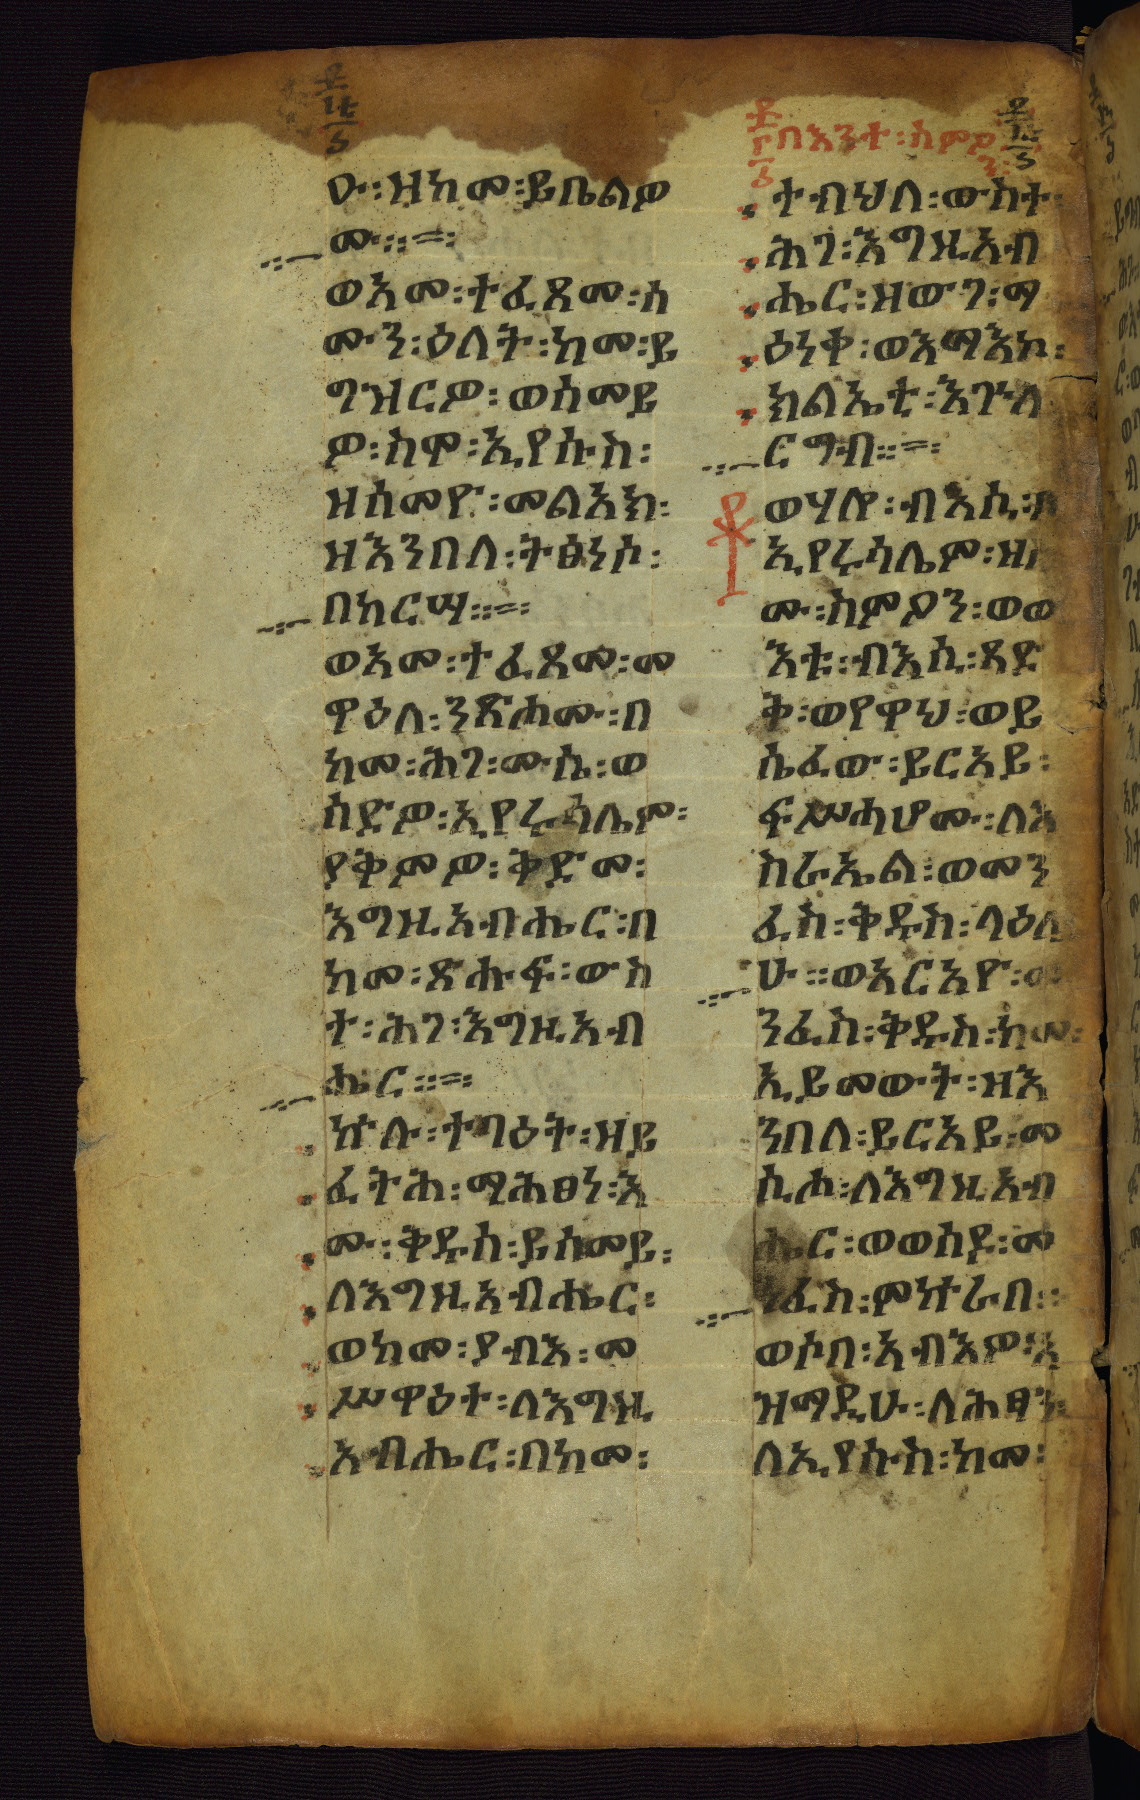 ዑ፡ዝከመ፡ይቤልዎ
ሙ፡፡፡=፡
ወአመ፡ተፈጸመ፡ሰ
ሙን፡ዕለት፡ከመ፡ይ
ግዝርዎ፡ወሰመይ
ዎ፡ስሞ፡ኢየሱስ፡
ዘሰመዮ፡መልአክ፡
ዘእንበለ፡ትፅነሶ፡
በከርሣ፡፡=፡
ወአመ፡ተፈጸመ፡መ
ዋዕለ፡ንጽሖሙ፡በ
ከመ፡ሕገ፡ሙሴ፡ወ
ሰድዎ፡ኢየሩሳሌም፡
ያቅምዎ፡ቅድመ፡
እግዚአብሔር፡በ
ከመ፡ጽሑፍ፡ውስ
ተ፡ሕገ፡እግዚአብ
ሔር፡፡=፡
ኵሉ፡ተባዕት፡ዘይ
ፈትሕ፡ማሕፀነ፡እ
ሙ፡ቅዱስ፡ይሰመይ፡
ለእግዚአብሔር፡
ወከመ፡ያብእ፡መ
ሥዋዕተ፡ለእግዚ
አብሔር፡በከመ፡
በእንተ፡ስምዖን፡
ተብህለ፡ውስተ፡
ሕገ፡እግዚአብ
ሔር፡ዘውገ፡ማ
ዕነቀ፡ወእማእኮ፡
ክልኤቲ፡እጕለ
ርግብ፡፡=፡
ወሃሎ፡ብእሲ፡በ
ኢየሩሳሌም፡ዘስ
ሙ፡ስምዖን፡ወው
እቱ፡ብእሲ፡ጻድ
ቅ፡ወየዋህ፡ወይ
ሴፈው፡ይርአይ፡
ፍሥሓሆሙ፡ለእ
ስራኤል፡ወመን
ፈስ፡ቅዱስ፡ላዕሌ
ሁ፡፡ወአርአዮ፡መ
ንፈስ፡ቅዱስ፡ከመ፡
ኢይመውት፡ዘእ
ንበለ፡ይርአይ፡መ
ሲሖ፡ለእግዚአብ
ሔር፡ወወሰዶ፡መ
ንፈስ፡ምኵራበ፡፡
ወሶበ፡አብእዎ፡አ
ዝማዲሁ፡ለሕፃን፡
ለኢየሱስ፡ከመ፡